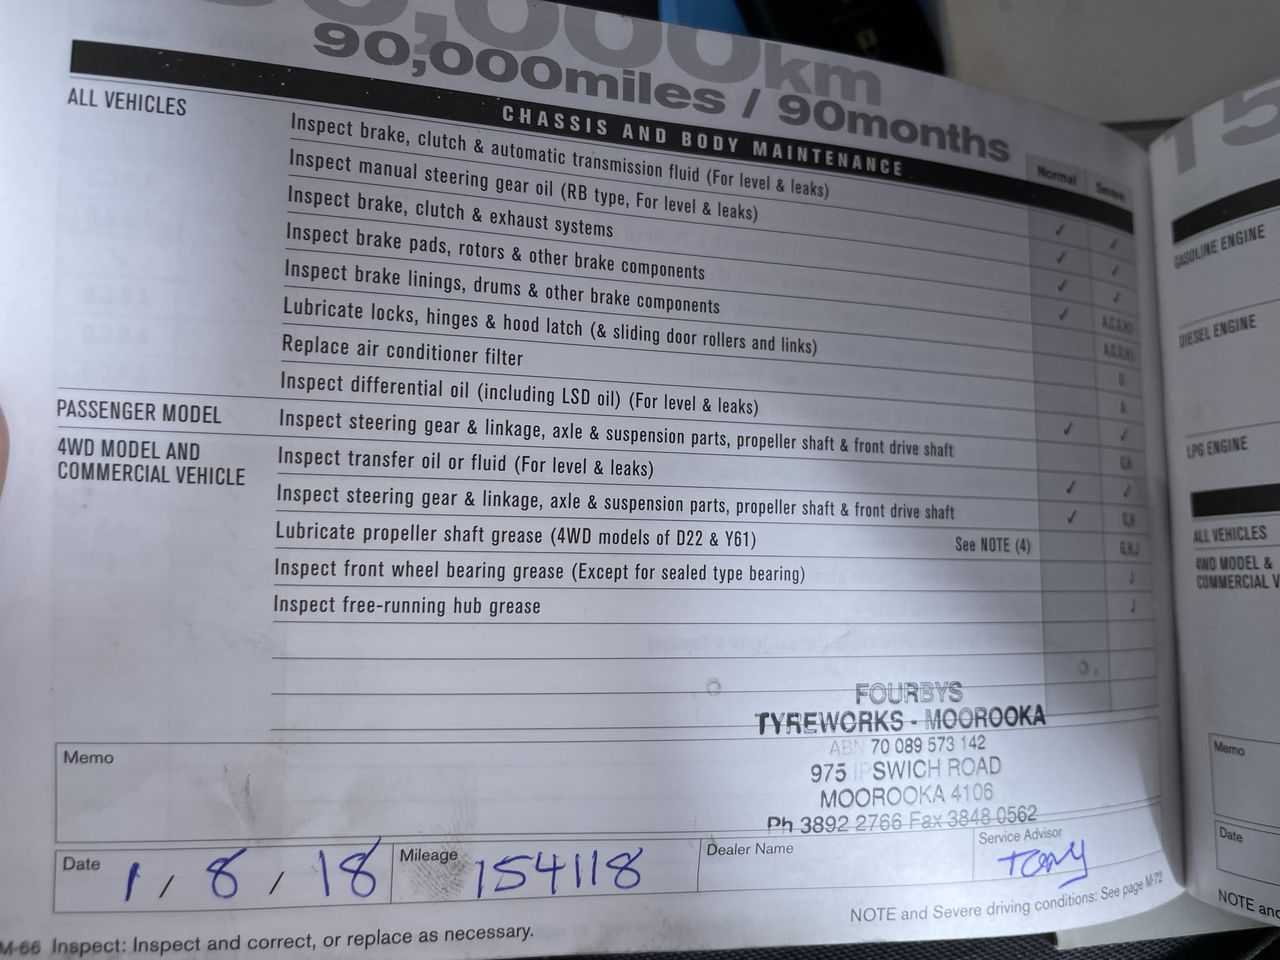 0,000km
90,000miles / 90months
CHASSIS AND BODY MAINTENANCE
Normal Severe
ALL VEHICLES
Inspect brake, clutch & automatic transmission fluid (For level & leaks) ✓ ✓
Inspect manual steering gear oil (RB type, For level & leaks) ✓ ✓
Inspect brake, clutch & exhaust systems ✓ ✓
Inspect brake pads, rotors & other brake components ✓
Inspect brake linings, drums & other brake components
Lubricate locks, hinges & hood latch (& sliding door rollers and links) G
Replace air conditioner filter A
Inspect differential oil (including LSD oil) (For level & leaks) ✓ ✓
PASSENGER MODEL
Inspect steering gear & linkage, axle & suspension parts, propeller shaft & front drive shaft G,H
4WD MODEL AND
COMMERCIAL VEHICLE
Inspect transfer oil or fluid (For level & leaks) ✓ ✓
Inspect steering gear & linkage, axle & suspension parts, propeller shaft & front drive shaft ✓ G,H
Lubricate propeller shaft grease (4WD models of D22 & Y61) See NOTE (4) G,H,J
Inspect front wheel bearing grease (Except for sealed type bearing) J
Inspect free-running hub grease J
FOURBYS
TYREWORKS - MOOROOKA
ABN 70 089 573 142
975 IPSWICH ROAD
MOOROOKA 4106
Ph 3892 2766 Fax 3848 0562
Memo
Date 1 / 8 / 18
Mileage 154118
Dealer Name
Service Advisor
Tony
NOTE and Severe driving conditions: See page M-72
M-66 Inspect: Inspect and correct, or replace as necessary.
15
GASOLINE ENGINE
DIESEL ENGINE
LPG ENGINE
ALL VEHICLES
4WD MODEL &
COMMERCIAL V
Memo
Date
NOTE and